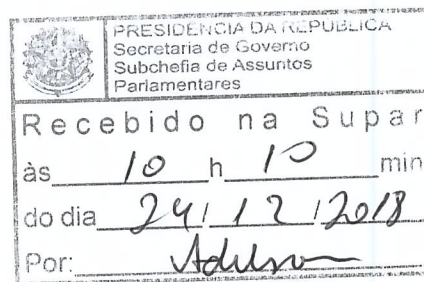 PRESIDÊNCIA DA REPÚBLICA
Secretaria de Governo
Subchefia de Assuntos
Parlamentares
Recebido na Supar
às 10 h 10 min
do dia 24/12/2018
Por: